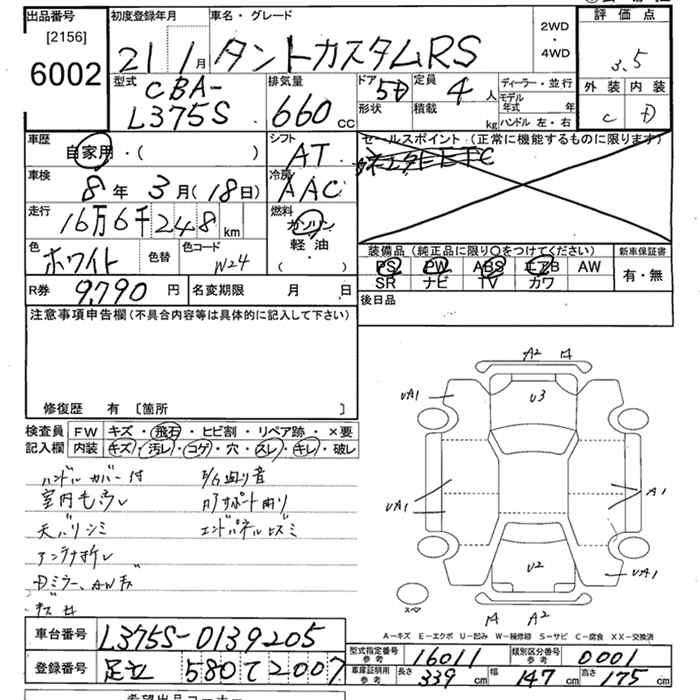 出品番号 初度登録年月 車名・グレード 2WD ・ 4WD 評価点
[2156]
6002 21 1月 タントカスタムRS 3.5
型式 CBA-L375S 排気量 660 cc ドア 5D 定員 4人 ディーラー・並行 外装 内装
形状 積載 kg モデル年式 年 C D
ハンドル 左・右
車歴 自家用・( ) シフト AT セールスポイント(正常に機能するものに限ります)
車検 8年3月(18日) 冷房 AAC
走行 16万6千248km 燃料 ガソリン 軽油 ( )
色 ホワイト 色替 色コード W24 装備品(純正品に限り○をつけてください) 新車保証書
PS PW ABS エアB AW 有・無
SR ナビ TV カワ
R券 9,790円 名変期限 月 日 後日品
注意事項申告欄(不具合内容等は具体的に記入して下さい)
修復歴 有 [箇所 ]
検査員 FW キズ・飛石・ヒビ割・リペア跡・×要
記入欄 内装 キズ・汚レ・コゲ・穴・スレ・キレ・破レ
ハンドルカバー付
室内毛汚レ
天バリシミ
アンテナオレ
Dミラー、AWキズ
A2
U3
UA1
UA1
A1
U2
UA1
A2
スペア
A-キズ E-エクボ U-凹み W-補修跡 S-サビ C-腐食 XX-交換済
車台番号 L375S-0139205 型式指定番号 参考 16011 類別区分番号 参考 0001
登録番号 足立 580 て 2007 車庫証明用 参考 長さ 339cm 幅 147cm 高さ 175cm
希望出品コーナー